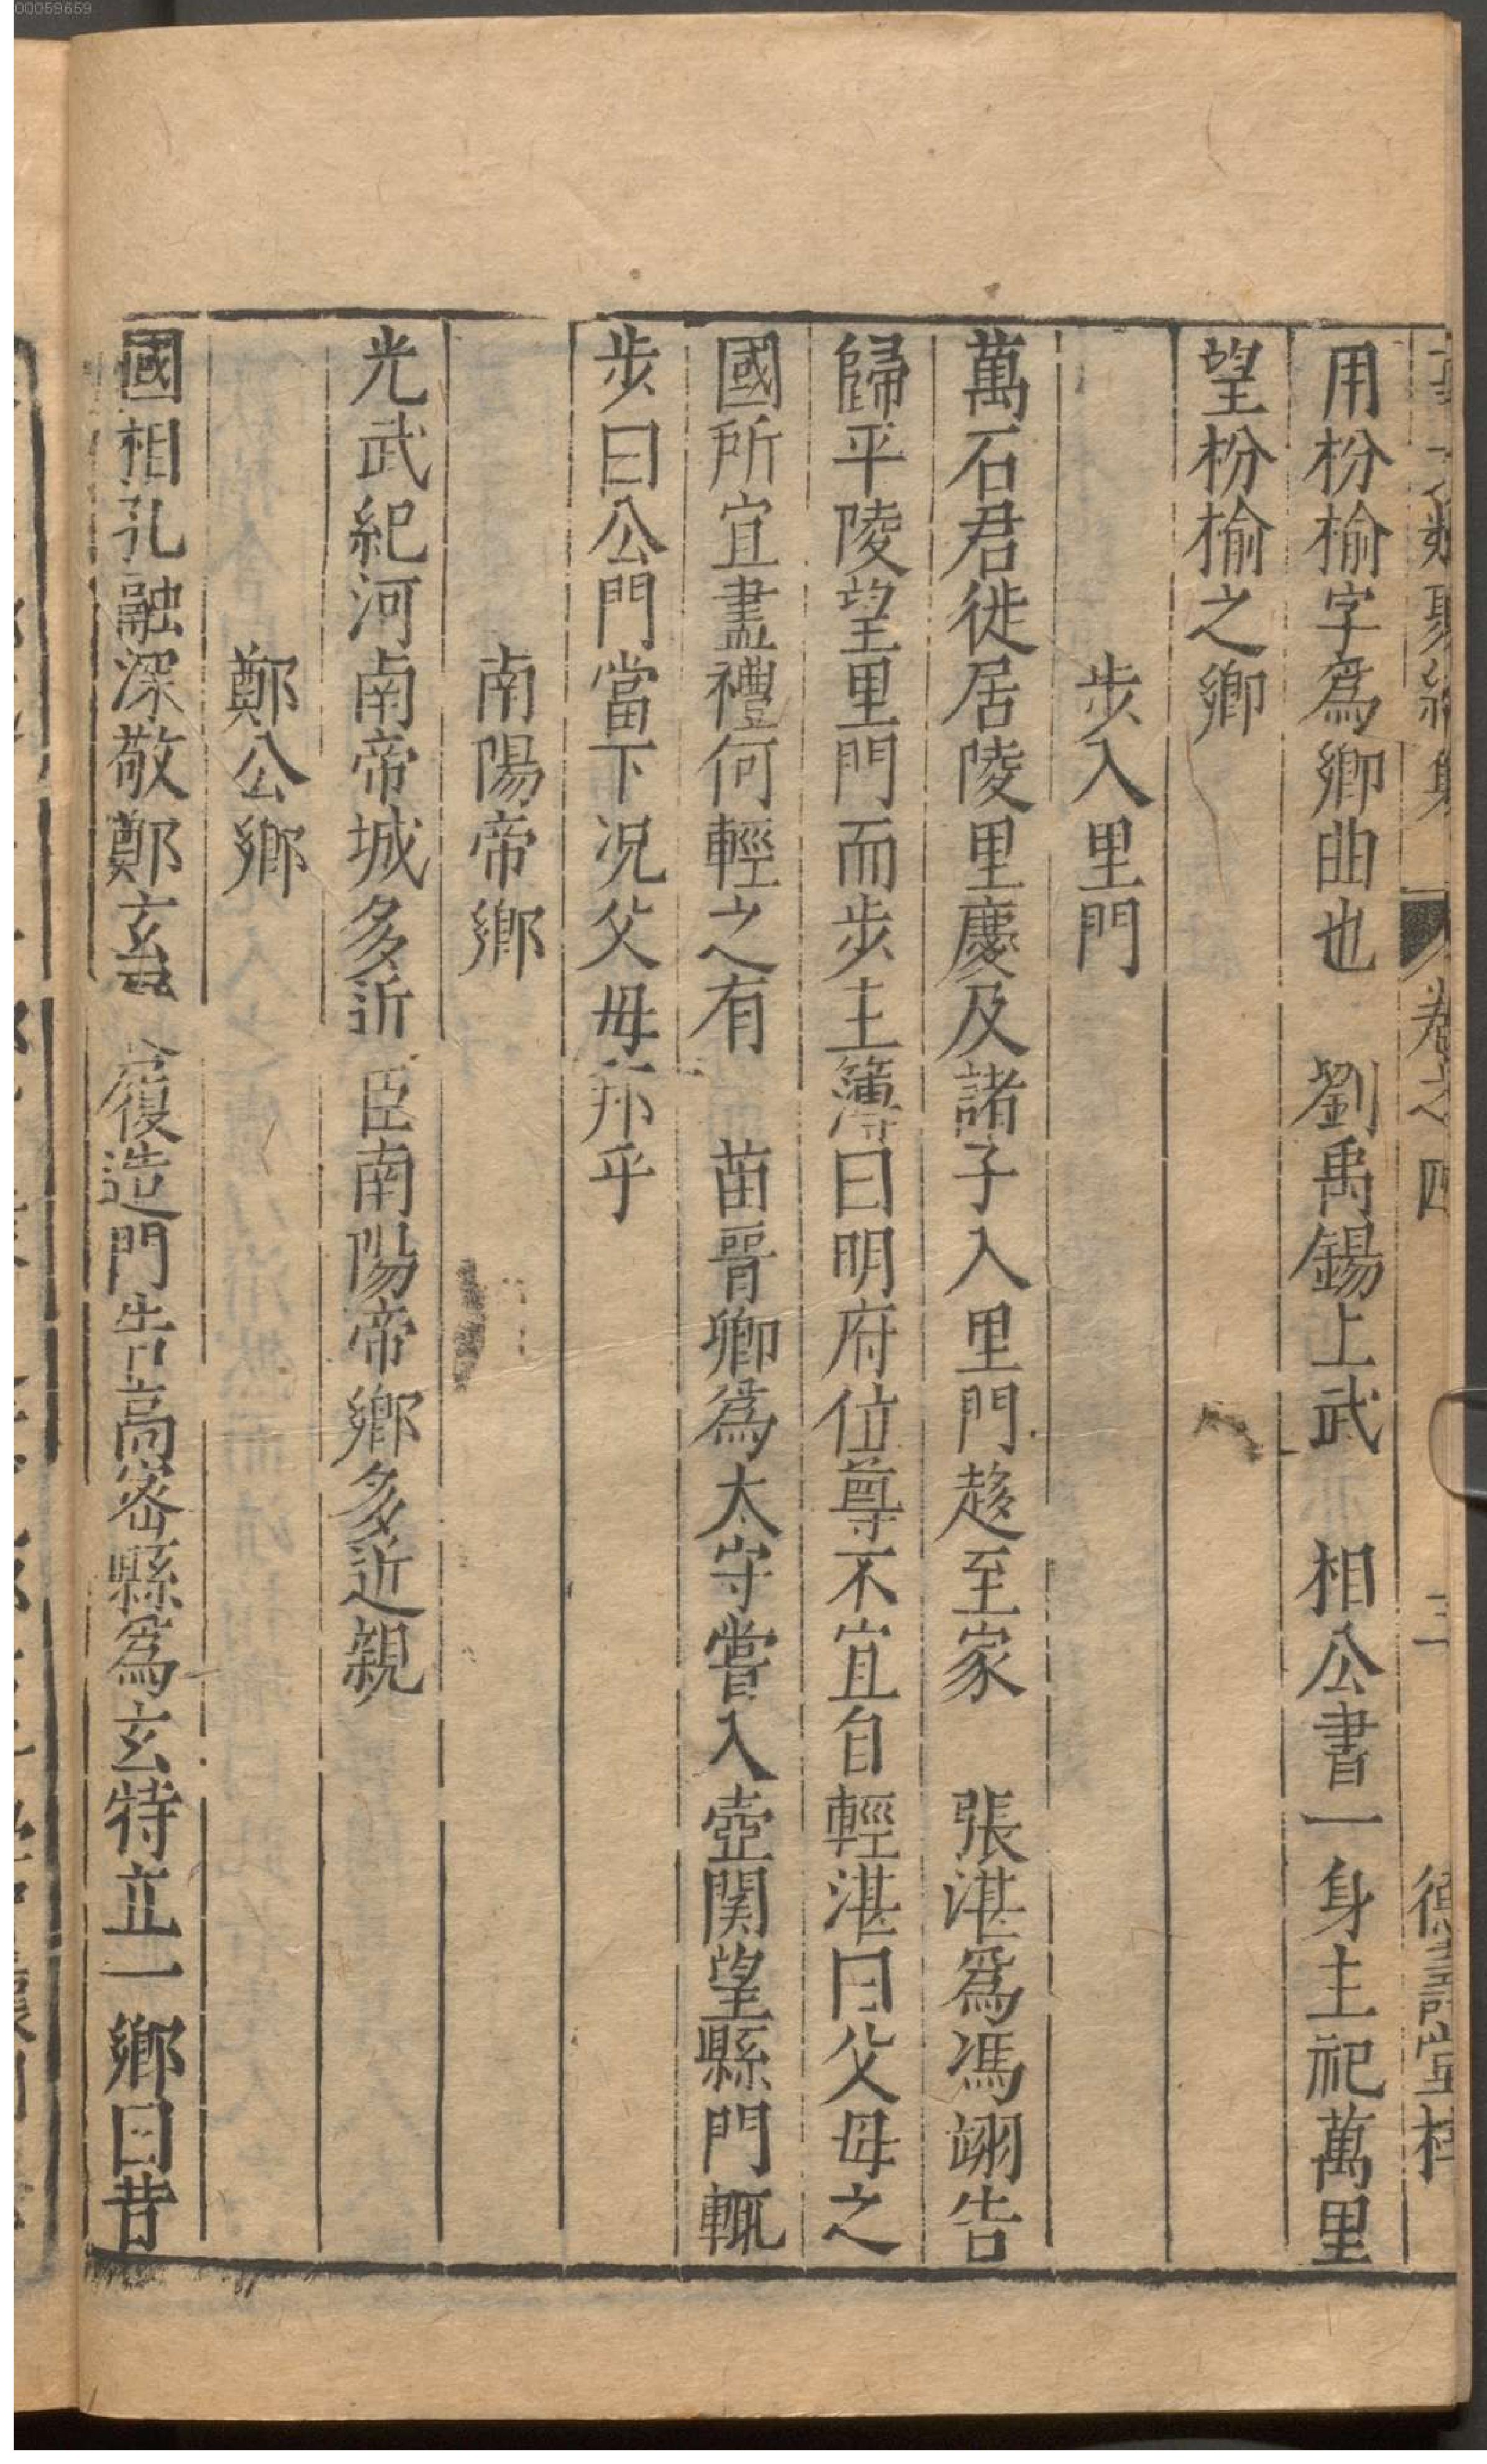 00059659
卷之四 三 德壽堂梓
用枌榆字爲鄕曲也 劉禹錫上武 相公書一身主祀萬里
望枌榆之鄕
步入里門
萬石君徙居陵里慶及諸子入里門趍至家 張湛爲馮翊告
歸平陵望里門而步主簿曰明府位尊不宜自輕湛曰父母之
國所宜盡禮何輕之有 苗晋卿爲太守嘗入壺関望縣門輒
步曰公門當下况父母邦乎
南陽帝鄉
光武紀河南帝城多近臣南陽帝鄉多近親
鄭公鄉
國相孔融深敬鄭玄 履造門告高密縣爲玄特立一鄉曰昔